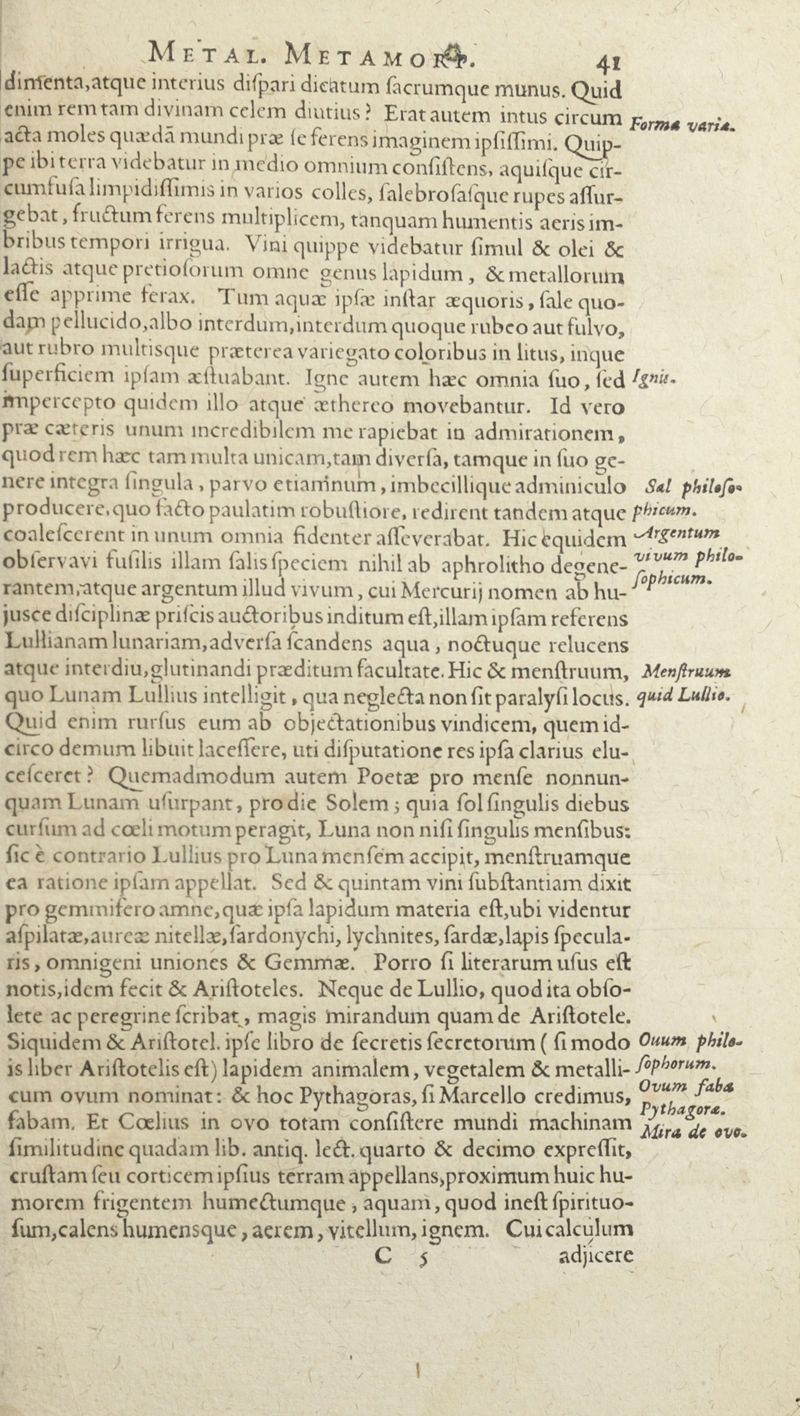 METAL. METAMOR. 41
dimenta,atque interius diſpari dicatum ſacrumque munus. Quid
enim rem tam divinam celem diutius? Erat autem intus circum
Forma varia.
acta moles quædã mundi præ ſe ferens imaginem ipſiſſimi. Quip-
pe ibi terra videbatur in medio omnium conſiſtens, aquiſque cir-
cumfuſa limpidiſſimis in varios colles, ſalebroſaſque rupes aſſur-
gebat, fructum ferens multiplicem, tanquam humentis aeris im-
bribus tempori irrigua. Vini quippe videbatur ſimul & olei &
lactis atque pretioſorum omne genus lapidum, & metallorum
eſſe apprime ferax. Tum aquæ ipſæ inſtar æquoris, ſale quo-
dam pellucido,albo interdum,interdum quoque rubeo aut fulvo,
aut rubro multisque præterea variegato coloribus in litus, inque
ſuperficiem ipſam æſtuabant. Igne autem hæc omnia ſuo, ſed
Ignis.
impercepto quidem illo atque æthereo movebantur. Id vero
præ cæteris unum incredibilem me rapiebat in admirationem,
quod rem hæc tam multa unicam,tam diverſa, tamque in ſuo ge-
nere integra ſingula, parvo etiamnum, imbecillique adminiculo
Sal philoſo-
producere,quo facto paulatim robuſtiore, redirent tandem atque
phicum.
coaleſcerent in unum omnia fidenter aſſeverabat. Hic equidem
Argentum
obſervavi fuſilis illam ſalis ſpeciem nihil ab aphrolitho degene-
vivum philo-
rantem,atque argentum illud vivum, cui Mercurij nomen ab hu-
ſophicum.
jusce diſciplinæ priſcis auctoribus inditum eſt,illam ipſam referens
Lullianam lunariam,adverſa ſcandens aqua, noctuque relucens
atque interdiu,glutinandi præditum facultate. Hic & menſtruum,
Menſtruum
quo Lunam Lullius intelligit, qua neglecta non fit paralyſi locus.
quid Lullio.
Quid enim rurſus eum ab objectationibus vindicem, quem id-
circo demum libuit laceſſere, uti diſputatione res ipſa clarius elu-
ceſceret? Quemadmodum autem Poetæ pro menſe nonnun-
quam Lunam uſurpant, pro die Solem; quia ſol ſingulis diebus
curſum ad cœli motum peragit, Luna non niſi ſingulis menſibus:
ſic è contrario Lullius pro Luna menſem accipit, menſtruamque
ea ratione ipſam appellat. Sed & quintam vini ſubſtantiam dixit
pro gemmifero amne,quæ ipſa lapidum materia eſt,ubi videntur
aſpilatæ,aureæ nitellæ,ſardonychi, lychnites, ſardæ,lapis ſpecula-
ris, omnigeni uniones & Gemmæ. Porro ſi literarum uſus eſt
notis,idem fecit & Ariſtoteles. Neque de Lullio, quod ita obſo-
lete ac peregrine ſcribat, magis mirandum quam de Ariſtotele.
Siquidem & Ariſtotel. ipſe libro de ſecretis ſecretorum ( ſi modo
Ouum philo-
is liber Ariſtotelis eſt) lapidem animalem, vegetalem & metalli-
ſophorum.
cum ovum nominat: & hoc Pythagoras, ſi Marcello credimus,
Ovum faba
fabam. Et Cœlius in ovo totam conſiſtere mundi machinam
Pythagoræ.
Mira de ovo.
ſimilitudine quadam lib. antiq. lect. quarto & decimo expreſſit,
cruſtam ſeu corticem ipſius terram appellans,proximum huic hu-
morem frigentem humectumque, aquam, quod ineſt ſpirituo-
ſum,calens humensque, aerem, vitellum, ignem. Cui calculum
C 5 adjicere